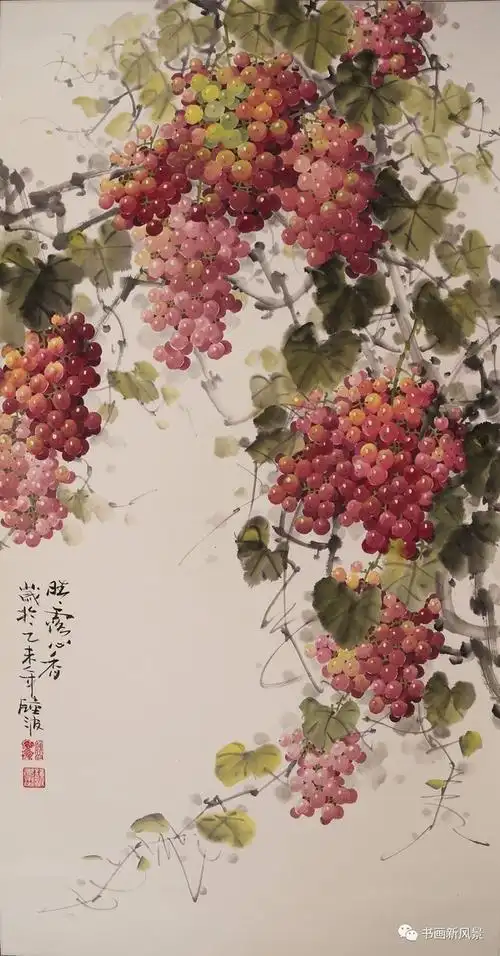 露心香
歲於乙未年陸波
书画新风景